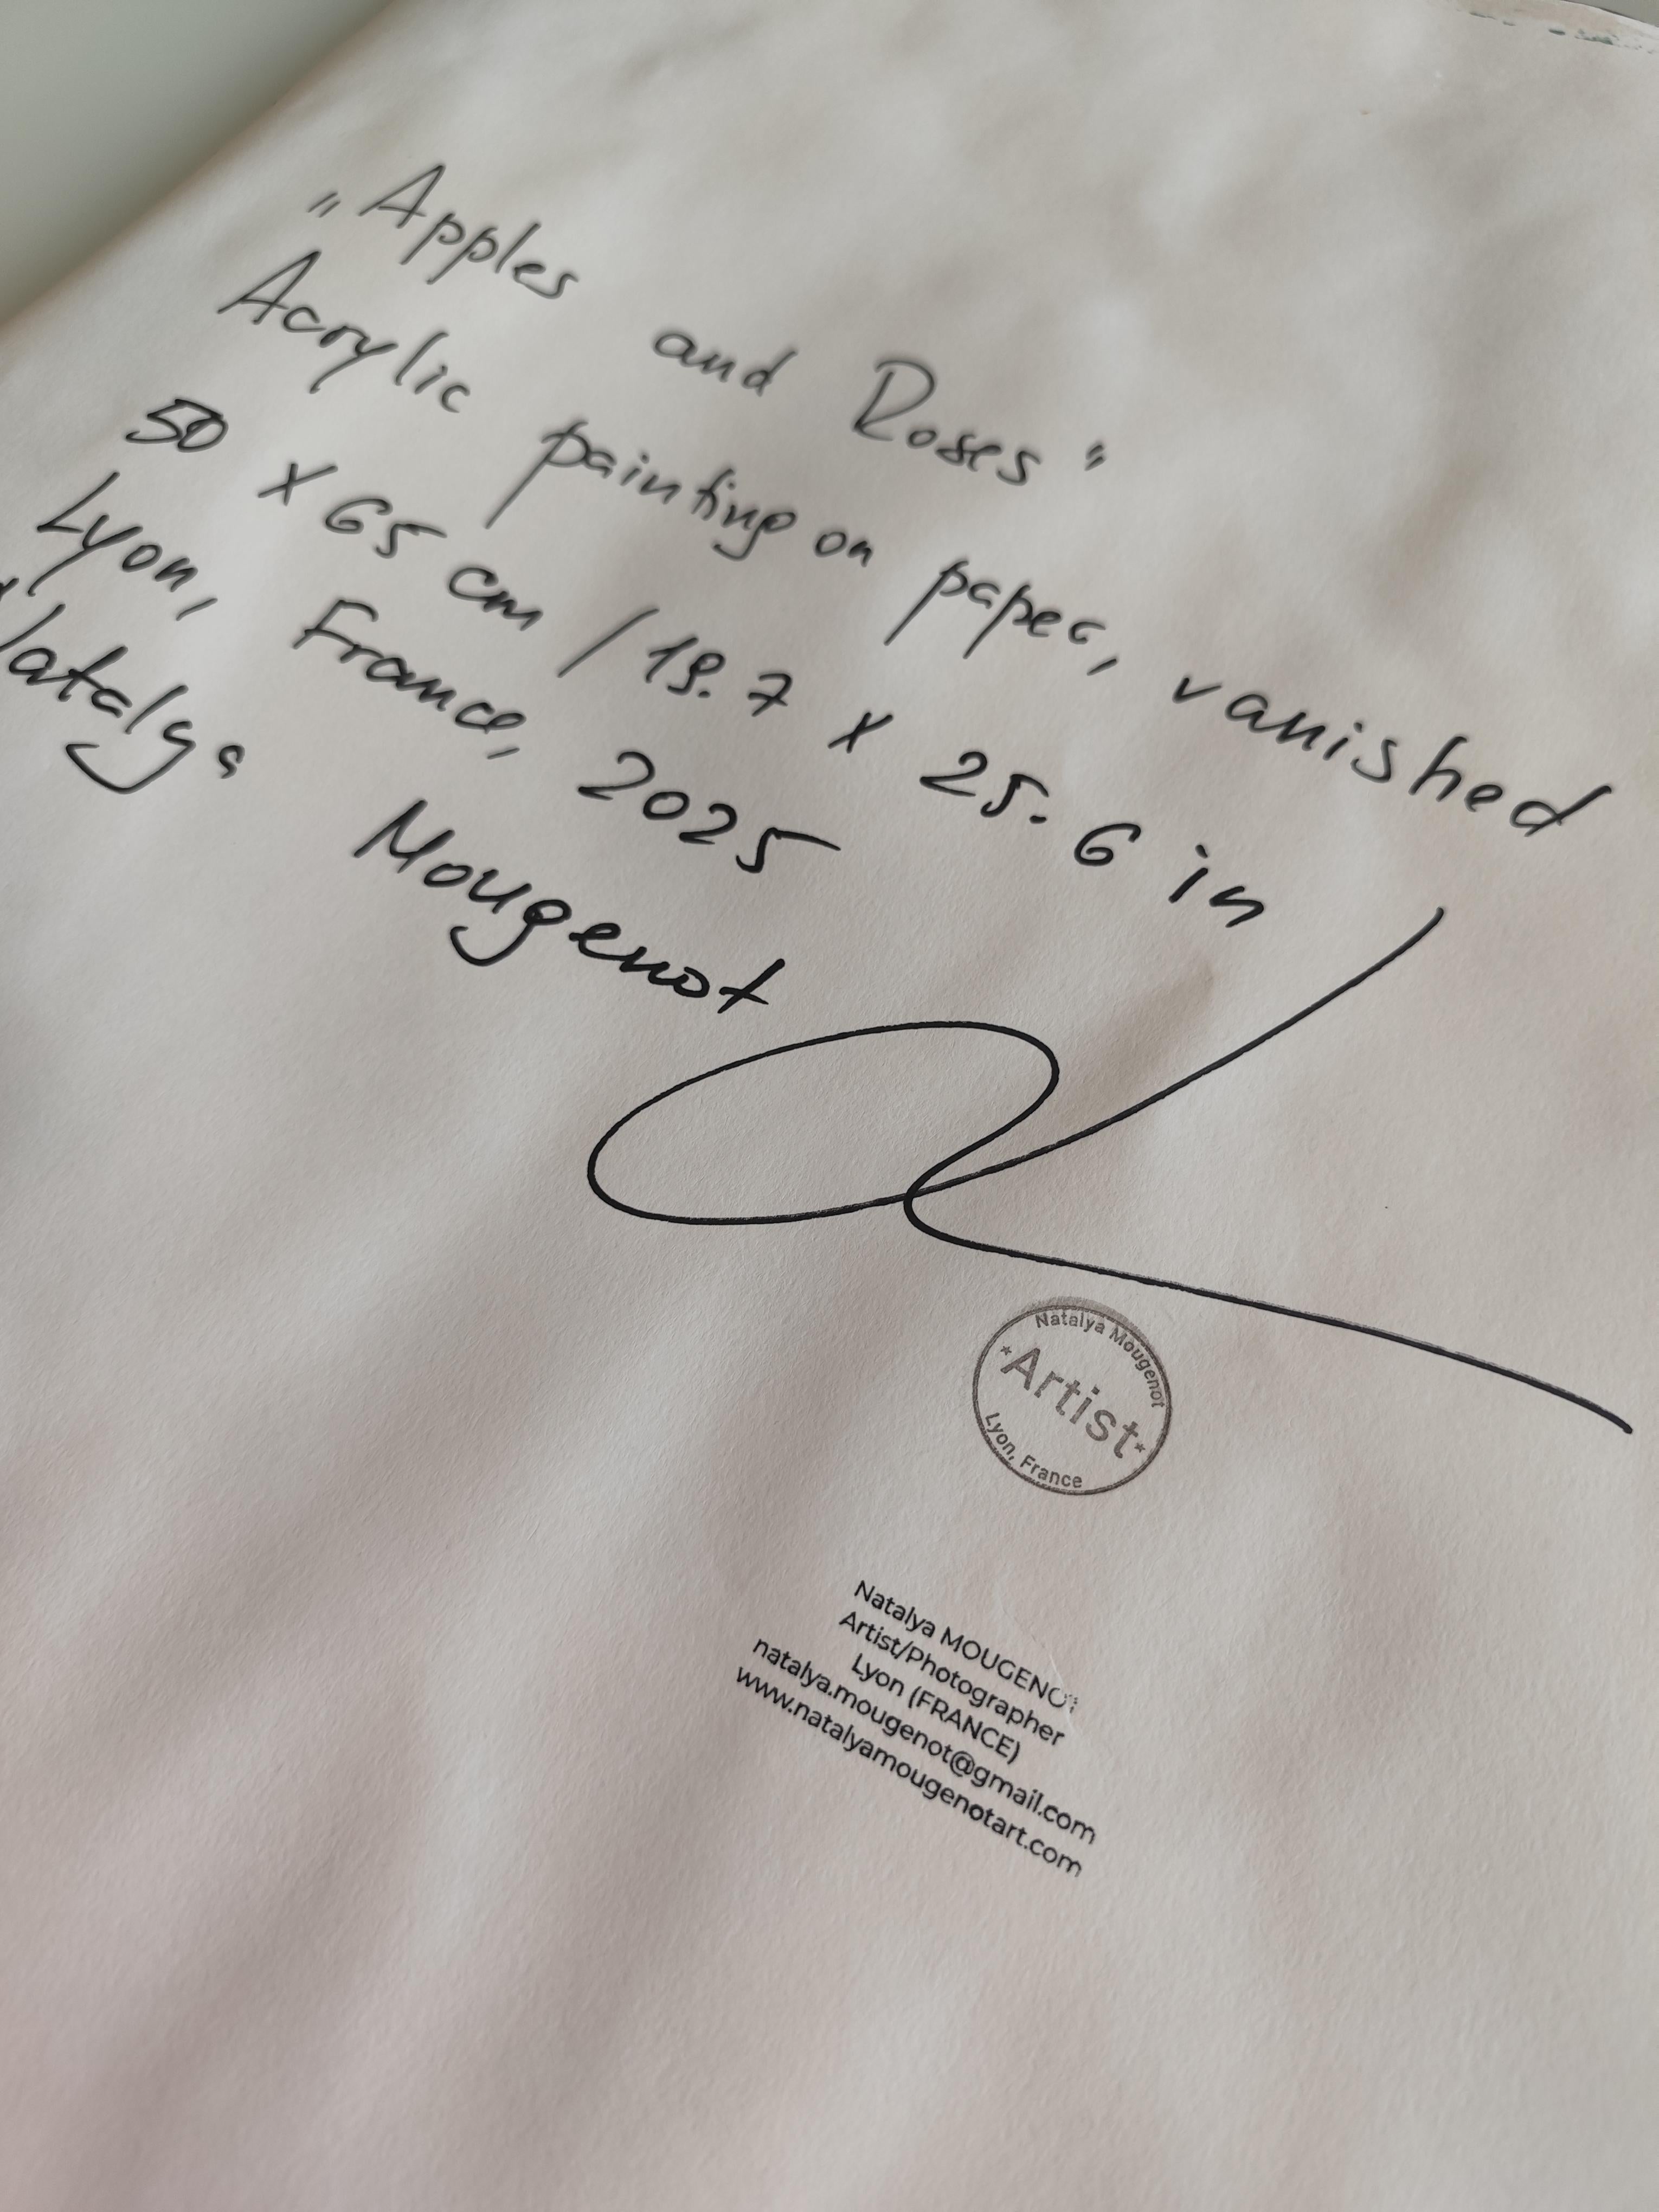 „Apples and Roses"
Acrylic painting on paper, vanished
50 x 65 cm / 19.7 x 25.6 in
Lyon, France, 2025
Natalya Mougenot
Natalya Mougenot
*Artist*
Lyon, France
Natalya MOUGENOT
Artist/Photographer
Lyon (FRANCE)
natalya.mougenot@gmail.com
www.natalyamougenotart.com